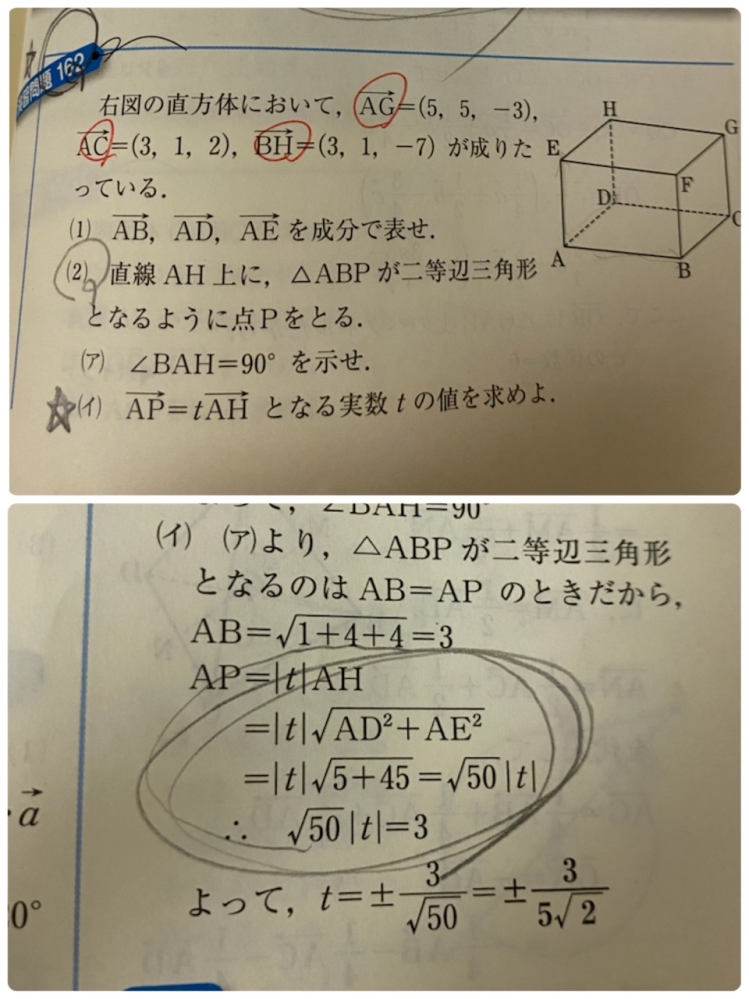 習問題 162
右図の直方体において，AG→=(5, 5, −3),
AC→=(3, 1, 2), BH→=(3, 1, −7) が成りた
っている．
(1) AB→, AD→, AE→ を成分で表せ．
(2) 直線 AH 上に，△ABP が二等辺三角形
となるように点Pをとる．
(ア) ∠BAH=90° を示せ．
(イ) AP→=tAH→ となる実数 t の値を求めよ．
H
G
E
F
D
C
A
B
∠BAH=90°
(イ) (ア)より，△ABP が二等辺三角形
となるのは AB=AP のときだから，
AB=√(1+4+4)=3
AP=|t|AH
=|t|√(AD²+AE²)
=|t|√(5+45)=√50|t|
∴ √50|t|=3
よって，t=±3/√50=±3/(5√2)
a→
0°